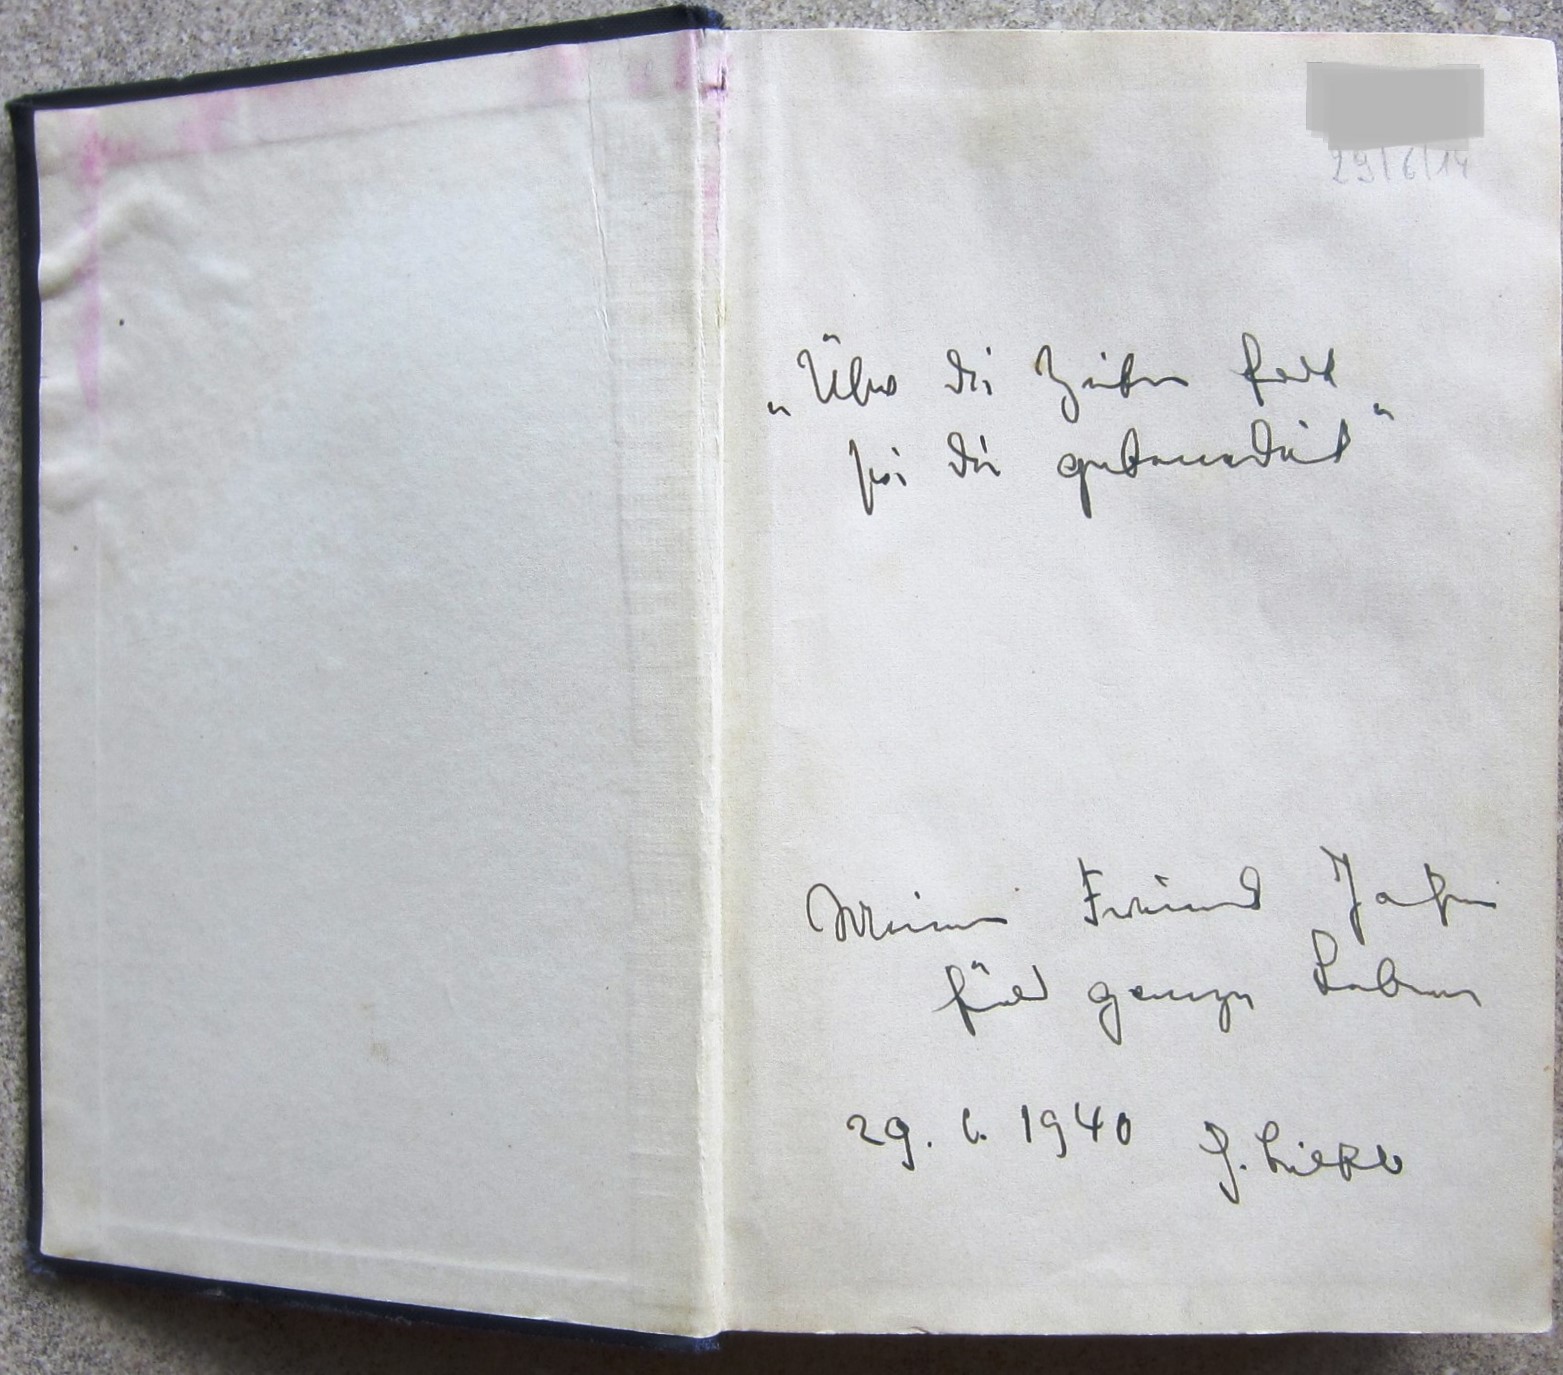 29/6/14
„Über die Zeiten fort
sei dir gutanedeit“
Meinem Freund
fürs ganze Leben
29. 6. 1940